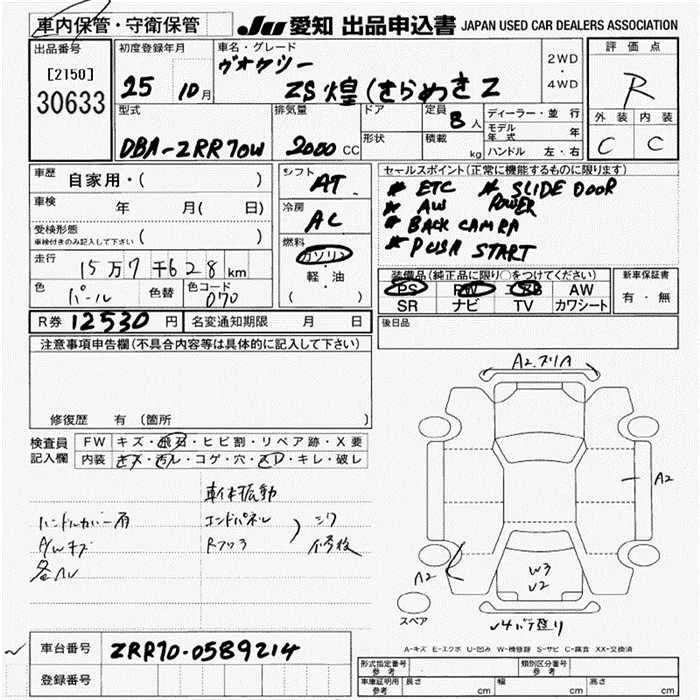 車内保管・守衛保管
JU 愛知 出品申込書 JAPAN USED CAR DEALERS ASSOCIATION
出品番号
[2150]
30633
初度登録年月
25 10月
車名・グレード
ヴォクシー
ZS 煌(きらめき Z
2WD
・
4WD
評価点
R
外装 内装
C C
型式
DBA-ZRR70W
排気量
2000 CC
ドア
形状
定員 8人
積載 kg
ディーラー・並行
モデル年式 年
ハンドル 左・右
車歴 自家用・( )
車検 年 月( 日)
受検形態
車検付きのみ記入して下さい ( )
走行
15万7千628km
色 パール 色替 色コード 070
シフト AT
冷房 AC
燃料
ガソリン
・
軽・油
( )
セールスポイント(正常に機能するものに限ります)
* ETC * SLIDE DOOR
* AW POWER
* BACK CAMRA
* PUSH START
装備品(純正品に限り○をつけてください)
PS PW AW
SR ナビ TV カワシート
新車保証書
有・無
R券 12530円 名変通知期限 月 日
後日品
注意事項申告欄(不具合内容等は具体的に記入して下さい)
修復歴 有 (箇所 )
検査員
記入欄
FW キズ・飛石・ヒビ割・リペア跡・X要
内装 キズ・汚レ・コゲ・穴・スレ・キレ・破レ
車体振動
ハンドルカバー有 エンドパネル
A/Wキズ Rフロア
シワ
修復
A2
A2
A2
W3
U2
スペア
A-キズ E-エクボ U-凹み W-補修跡 S-サビ C-腐食 XX-交換済
車台番号 ZRR70-0589214
登録番号
形式指定番号
参考
類別区分番号
参考
車庫証明用
参考
長さ cm 幅 cm 高さ cm